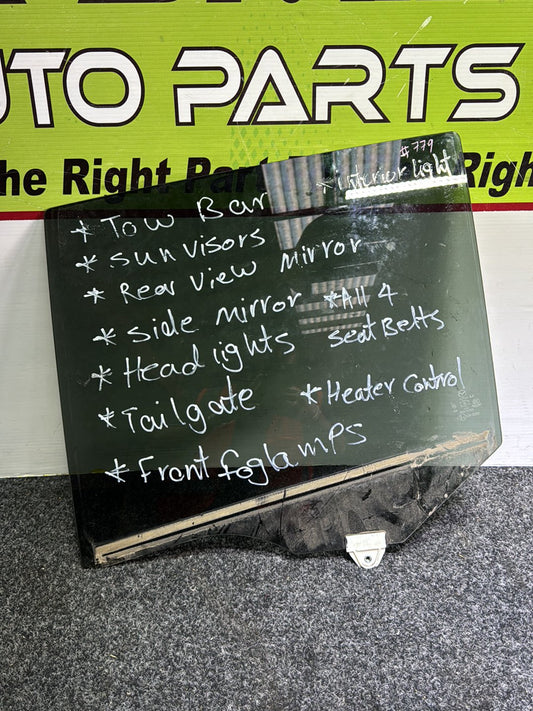 UTO PARTS
he Right Part Righ
#779
*interior light
* Tow Bar
* sun visors
* Rear View Mirror
* side mirror
*All 4
seat Belts
* Head lights
* Tailgate
* Heater Control
* Front foglamps